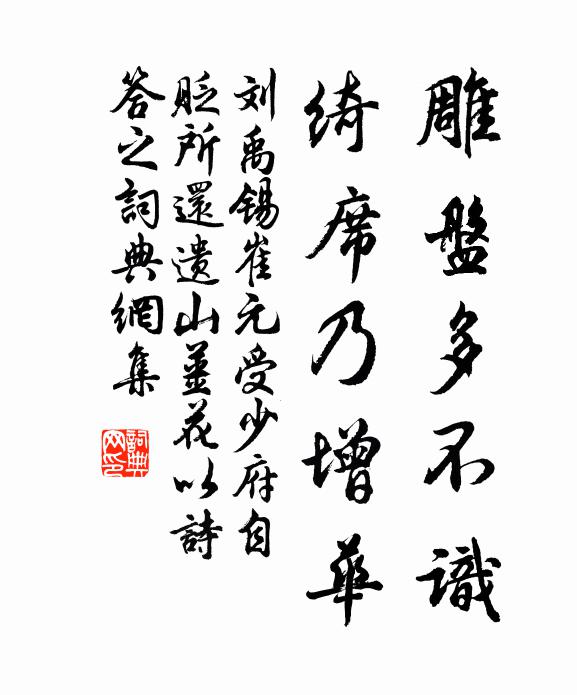 雕盤多不識
綺席乃增華
刘禹锡崔元受少府自
贬所還遺山薑花以詩
答之詞典網集
詞典
网印